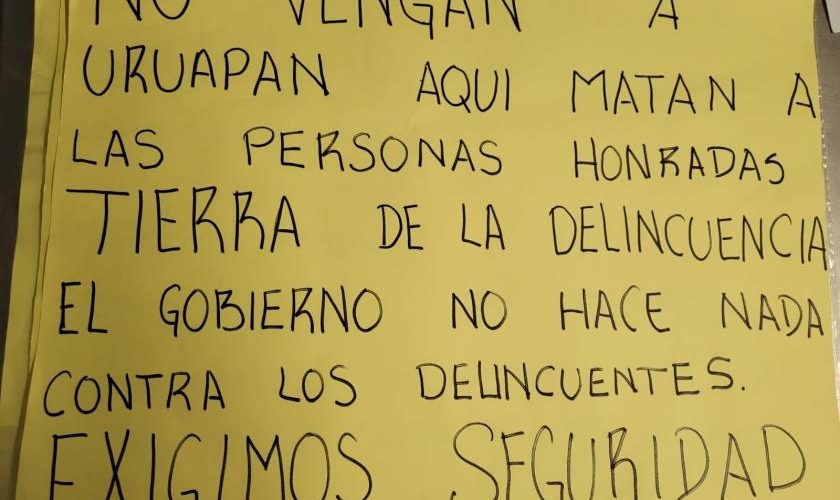 NO VENGAN A
URUAPAN AQUI MATAN A
LAS PERSONAS HONRADAS
TIERRA DE LA DELINCUENCIA
EL GOBIERNO NO HACE NADA
CONTRA LOS DELINCUENTES.
EXIGIMOS SEGURIDAD